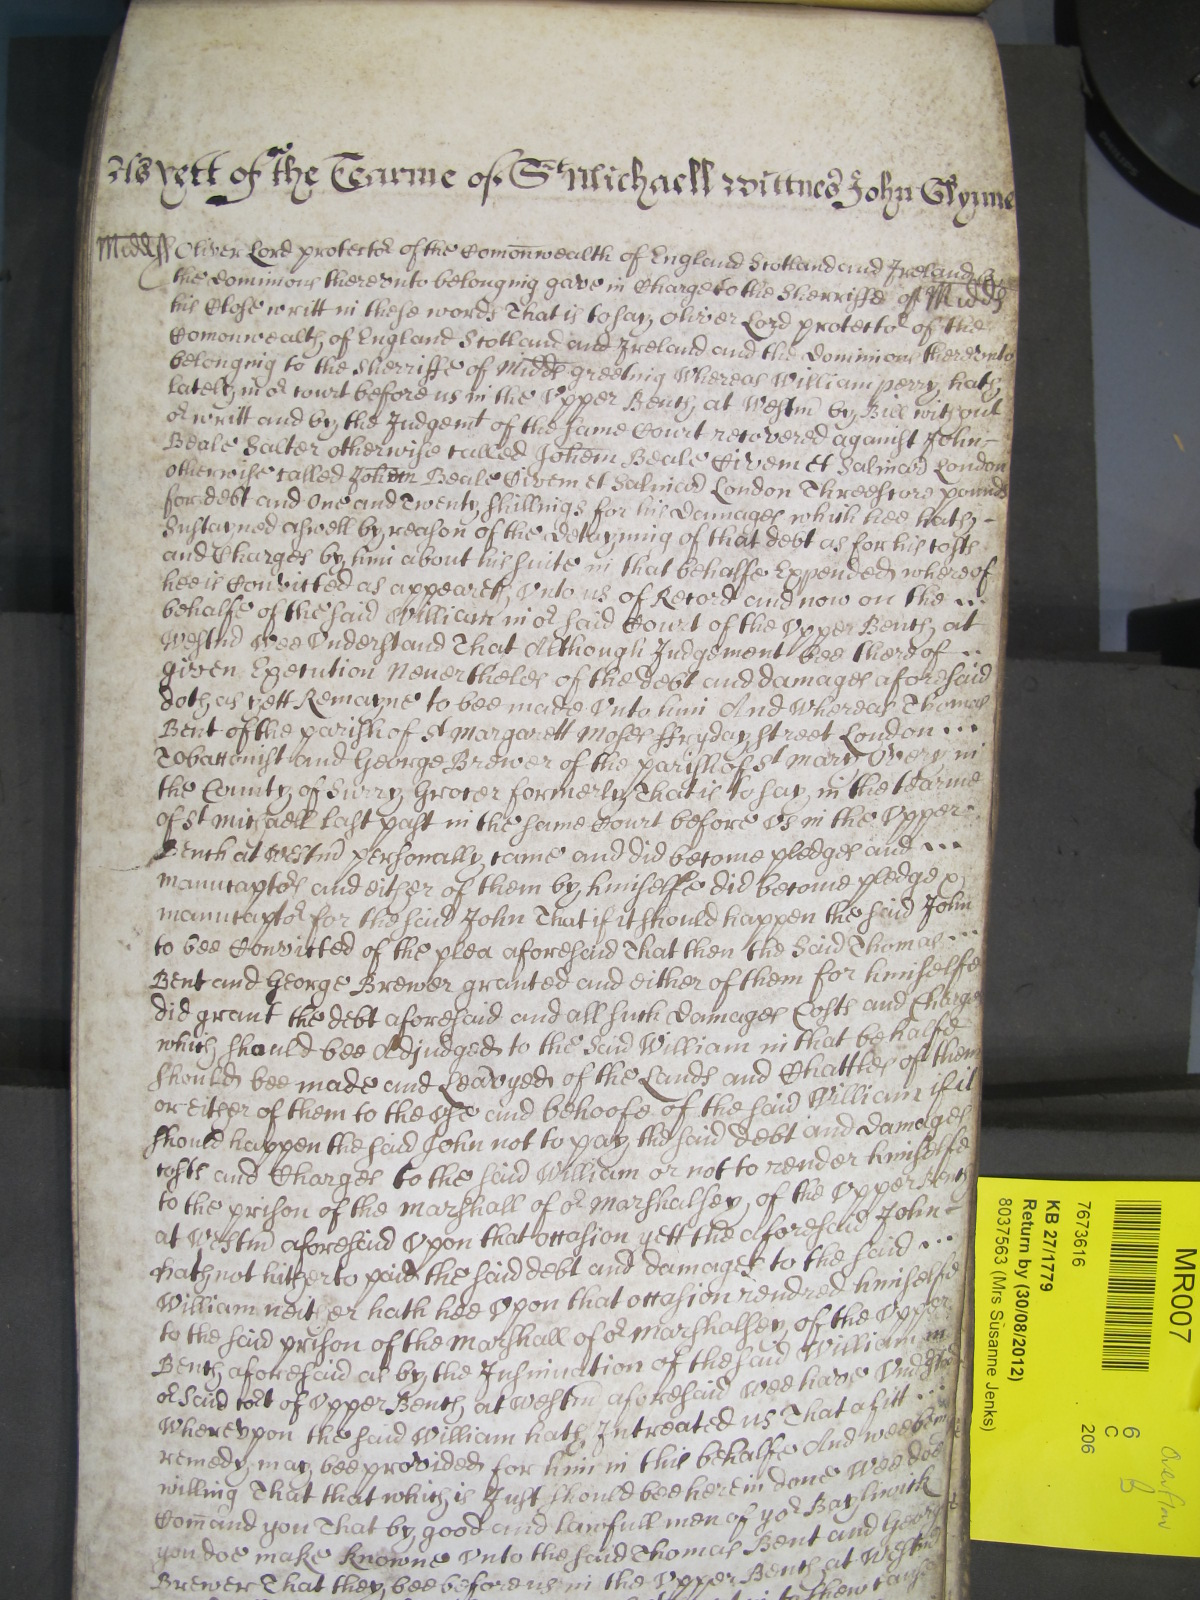 As yett of the Tearme of St Michaell Wittnes John Glynne
Midds Oliver Lord protector of the Comonwealth of England Scotland and Ireland &
the dominions thereunto belonging gave in Charge to the Sherriffe of Midds
his Close writt in these words That is to say Oliver Lord protector of the
Comonwealth of England Scotland and Ireland and the dominions thereunto
belonging to the Sherriffe of Midds greeting Whereas William perry hath
lately in or Court before us in the Upper Bench at Westm by Bill without
or writt and by the Judgemt of the same Court recovered against John
Beale Salter otherwise called Johem Beale Civem et Salinar London
otherwise called Johem Beale Civem et Salinar London Threescore pounds
for debt and One and Twenty shillings for his damages which hee hath
Sustayned aswell by reason of the detayning of that debt as for his costs
and Charges by him about his suite in that behalfe Expended whereof
hee is Convicted as appeareth Unto us of Record and now on the ...
behalfe of the said William in or said Court of the Upper Bench at
Westm Wee Understand That Although Judgement bee thereof ..
given Execution Neverthelesse of the debt and damages aforesaid
doth as yett Remayne to bee made Unto him And Whereas Thomas
Bent of the parish of St Margarett Moses ffryday street London ...
Tobacconist and George Brewer of the parish of St Mary Overy in
the County of Surry Grocer formerly That is to say in the tearme
of St Michaell last past in the same Court before Us in the Upper
Bench at Westm personally came and did become pledges and ...
manucaptors and either of them by himselfe did become pledge &
manucaptor for the said John That if it should happen the said John
to bee Convicted of the plea aforesaid That then the said Thomas ...
Bent and George Brewer granted and either of them for himselfe
did grant the debt aforesaid and all such damages Costs and Charges
which should bee Adjudged to the said William in that behalfe
should bee made and Leavyed of the Lands and Chattles of them
or either of them to the Use and behoofe of the said William if it
should happen the said John not to pay the said debt and damages
costs and Charges to the said William or not to render himselfe
to the prison of the Marshall of or Marshalsey of the Upper Bench
at Westm aforesaid Upon that occasion yett the aforesaid John
hath not hitherto paid the said debt and damages to the said ...
William neither hath hee Upon that occasion rendred himselfe
to the said prison of the Marshall of or Marshalsey of the Upper
Bench aforesaid as by the Insinuation of the said William in
or said Cort of Upper Bench at Westm aforesaid Wee have Undstood
Whereupon the said William hath Intreated us That a fitt ...
remedy may bee provided for him in this behalfe And wee being
willing That that which is Just should bee herein done Wee doe
Comand you That by good and lawfull men of yor Baylywick
you doe make knowne Unto the said Thomas Bent and George
Brewer That they bee before us in the Upper Bench at Westm
to shew cause
MR007
7673616
KB 27/1779
Return by (30/08/2012)
8037563 (Mrs Susanne Jenks)
6
C
206